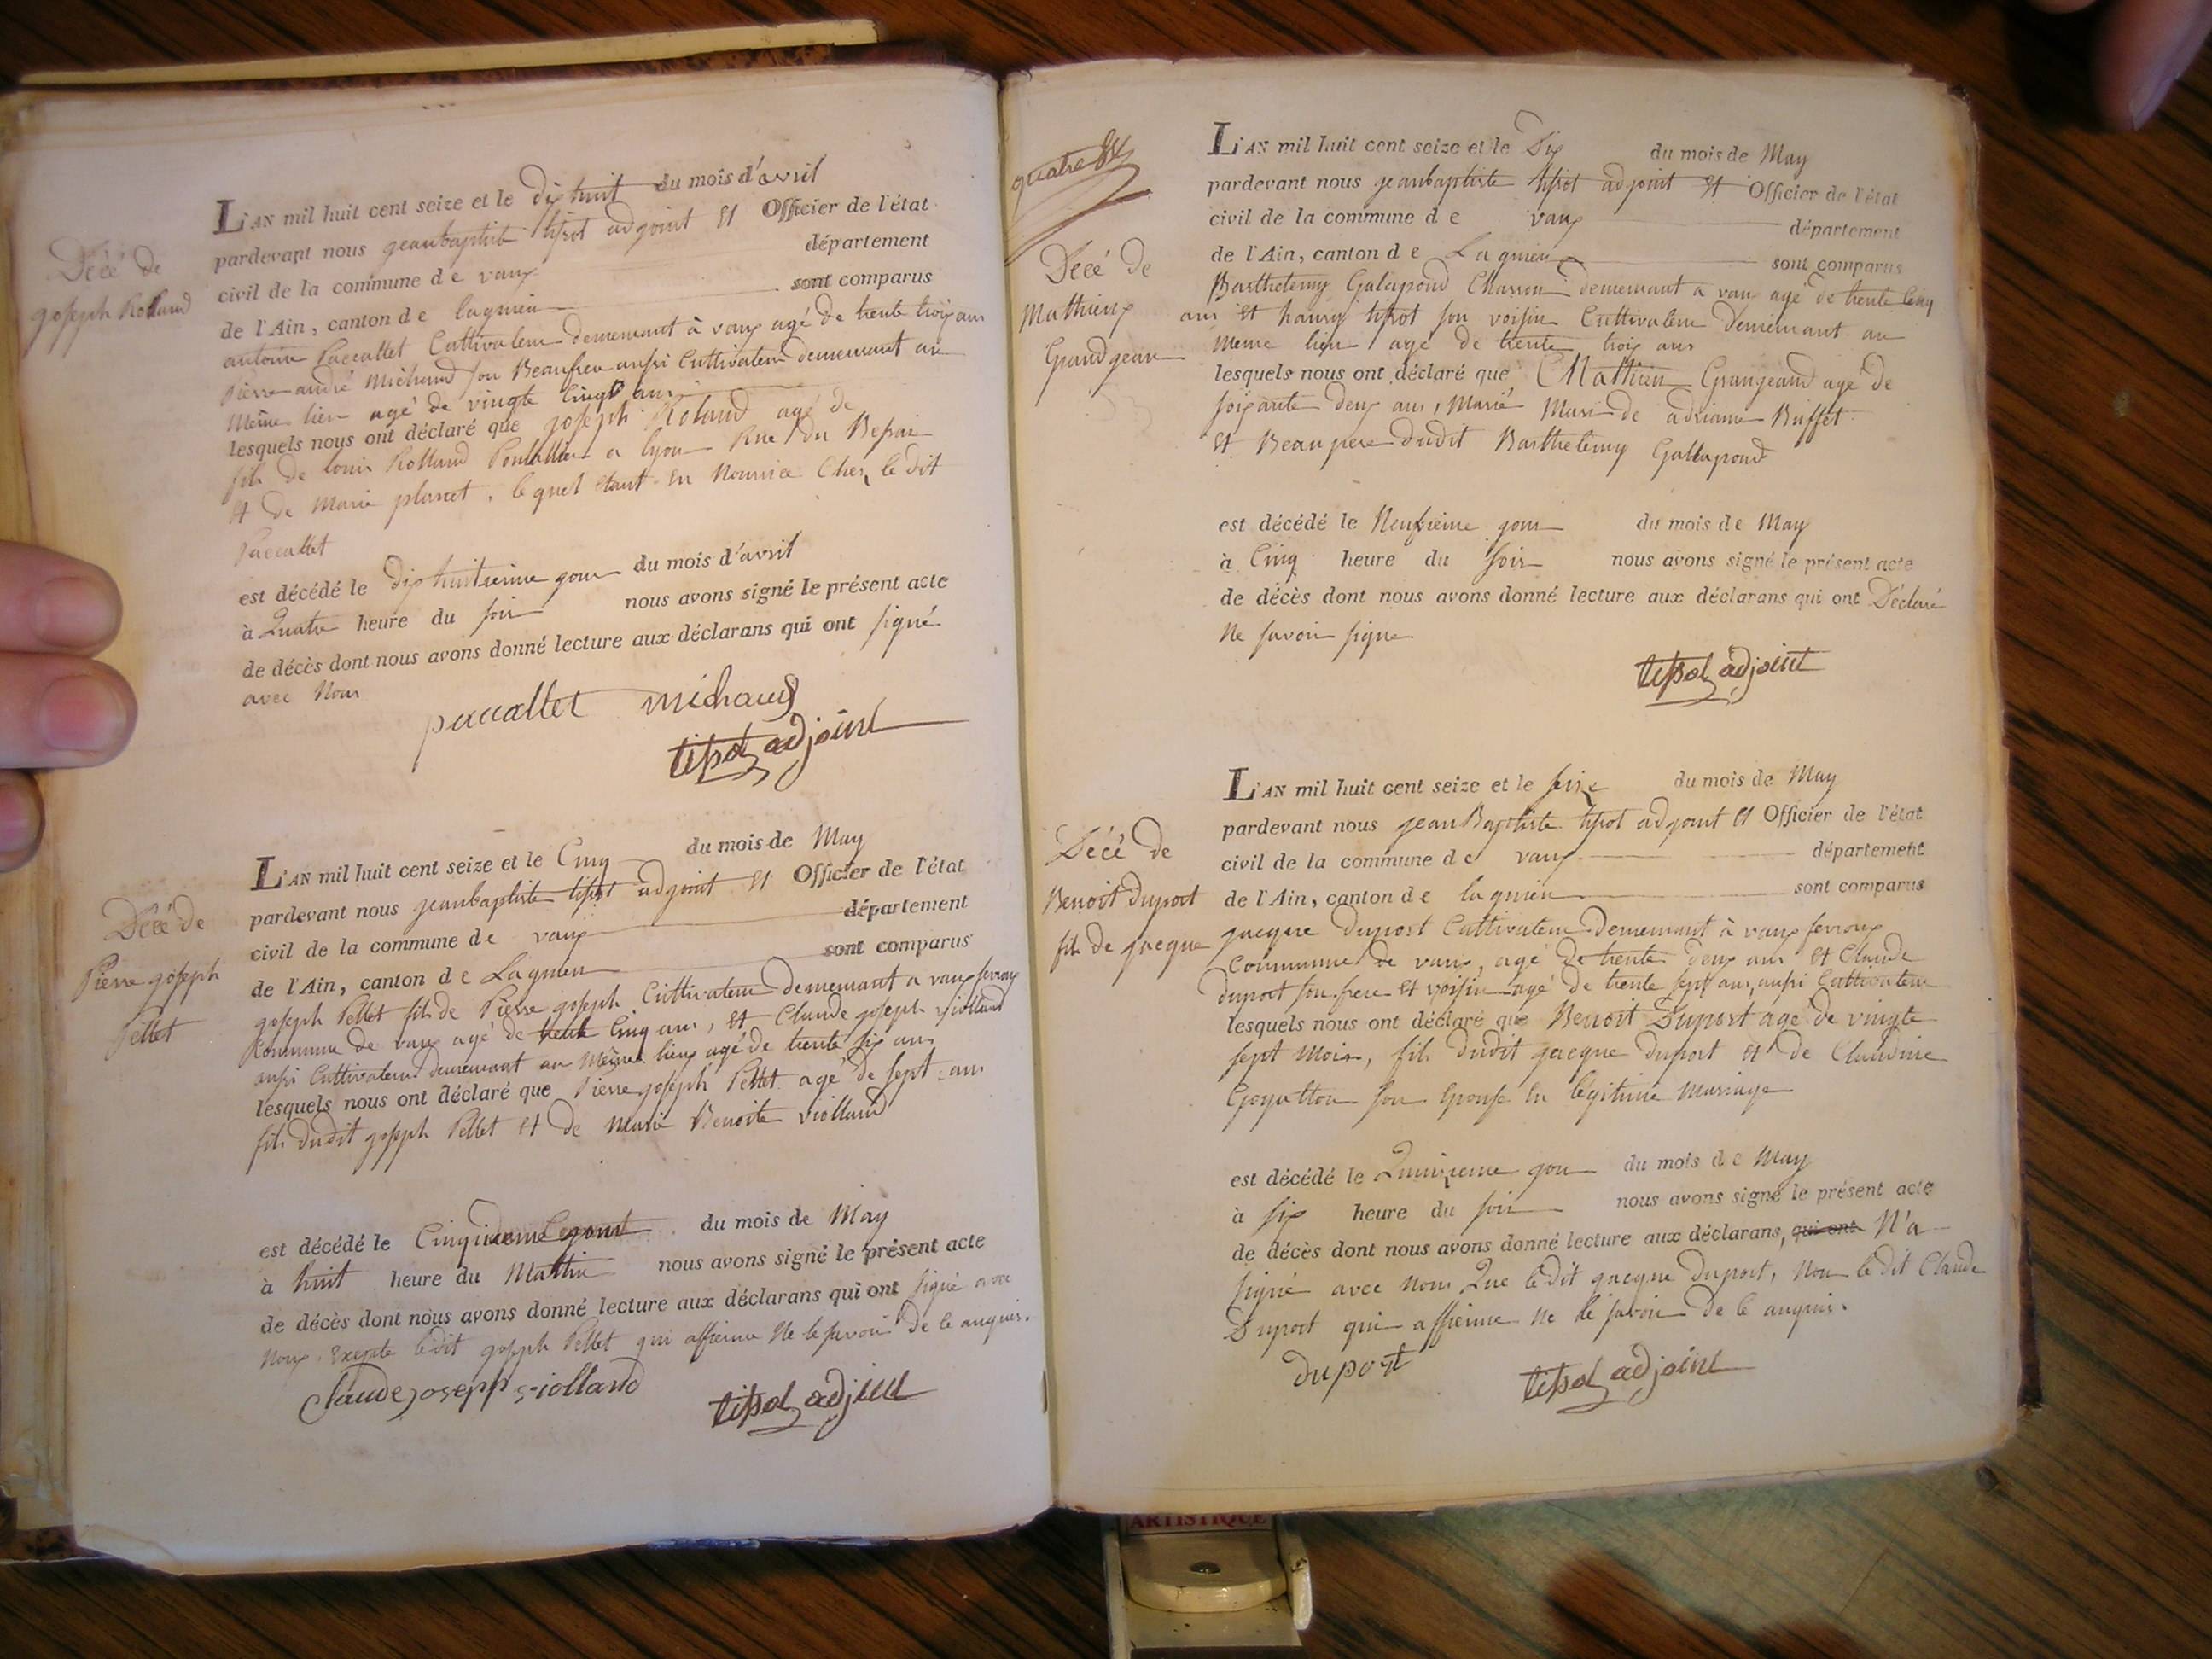 Décé de
joseph Rolland
L'AN mil huit cent seize et le dix huit du mois d'avril
pardevant nous jeanbaptiste tissot adjoint et Officier de l'état
civil de la commune de vaux département
de l'Ain, canton de lagnieu sont comparus
antoine Paccallet Cultivateur demeurant à vaux agé de trente trois ans
Pierre andré Michaud son Beaufrere aussi Cultivateur demeurant au
Même lieu agé de vingte Cinq ans
lesquels nous ont déclaré que joseph Roland agé de
fils de louis Rolland a lyon Rue du
et de Marie plancet, lequel étant en Nourrice Chez le dit
Paccallet
est décédé le dix huitieme jour du mois d'avril
à Quatre heure du soir nous avons signé le présent acte
de décès dont nous avons donné lecture aux déclarans qui ont signé
avec Nous
paccallet michaud
tissot adjoint
Décé de
Pierre joseph
Pellet
L'AN mil huit cent seize et le Cinq du mois de May
pardevant nous jeanbaptiste tissot adjoint et Officier de l'état
civil de la commune de vaux département
de l'Ain, canton de Lagnieu sont comparus
joseph Pellet fils de Pierre joseph Cultivateur demeurant a vaux fevroux
Commune de vaux agé de trente Cinq ans, et Claude joseph violland
aussi Cultivateur demeurant au Même lieux agé de trente six ans
lesquels nous ont déclaré que Pierre joseph Pellet agé de sept ans
fils dudit joseph Pellet et de Marie Benoite violland
est décédé le Cinquieme du mois de May
à huit heure du Mattin nous avons signé le présent acte
de décès dont nous avons donné lecture aux déclarans qui ont signé avec
Nous Exepte ledit joseph Pellet qui affirme Ne le savoir De le anquis.
Claude joseph violland
tissot adjoint
quatre
Décé de
Mathieux
Grandjean
L'AN mil huit cent seize et le Dix du mois de May
pardevant nous jeanbaptiste tissot adjoint et Officier de l'état
civil de la commune de vaux département
de l'Ain, canton de Lagnieu sont comparus
Barthelemy Galapond Charron demeurant a vaux agé de trente Cinq
ans et haury tissot son voisin Cultivateur Demeurant au
Meme lieu agé de trente trois ans
lesquels nous ont déclaré que Mathieu Granjeand agé de
soixante deux ans, Marié Mari de adrianne Buffet
et Beaupere dudit Barthelemy Gallapond
est décédé le Neufvieme jour du mois de May
à Cinq heure du soir nous avons signé le présent acte
de décès dont nous avons donné lecture aux déclarans qui ont Déclaré
Ne savoir signe
tissot adjoint
Décé de
Benoit Duport
fils de jacque
L'AN mil huit cent seize et le seize du mois de May
pardevant nous jean Baptiste tissot adjoint et Officier de l'état
civil de la commune de vaux département
de l'Ain, canton de lagnieu sont comparus
jacque Duport Cultivateur Demeurant à vaux fevroux
Commune de vaux, agé de trente deux ans et Claude
duport son frere et voisin agé de trente sept ans, aussi Cultivateur
lesquels nous ont déclaré que Benoit Duport agé de vingte
sept Mois, fils dudit jacque Duport et de Claudine
son Epouse en légitime Mariage
est décédé le Quinzieme jour du mois de May
à six heure du soir nous avons signé le présent acte
de décès dont nous avons donné lecture aux déclarans, qui ont N'a
signé avec nous Que ledit jacque Duport, Non le dit Claude
Duport qui affirme ne le savoir De le anquis.
duport
tissot adjoint
ARTISTIQUE